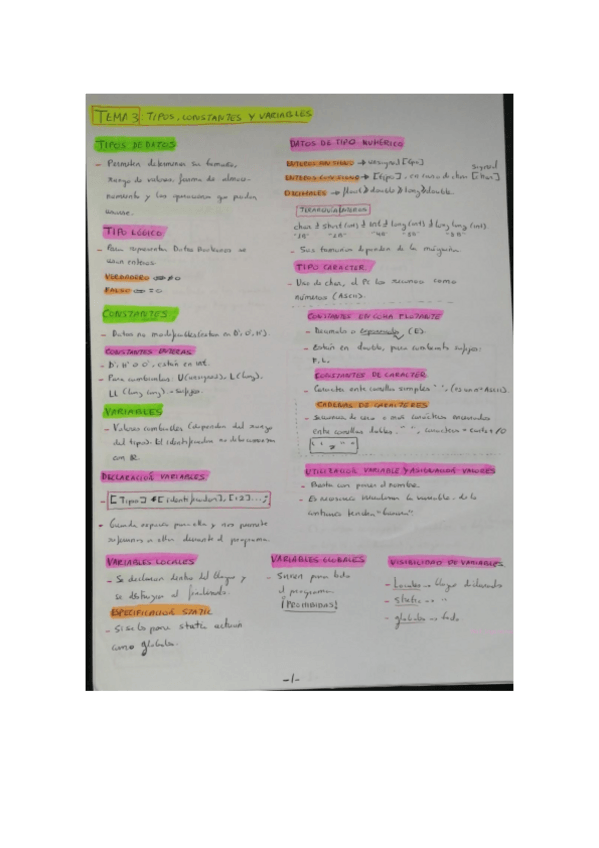 TEMA 3: TIPOS, CONSTANTES Y VARIABLES
TIPOS DE DATOS
- Permiten determinar su tamaño,
rango de valores, forma de almace-
namiento y las operaciones que pueden
usarse.
TIPO LÓGICO
- Para representar Datos Booleanos se
usan enteros.
VERDADERO ⇔ ≠0
FALSO ⇔ =0
CONSTANTES
- Datos no modificables (exctos en D', O', H').
CONSTANTES ENTERAS
- D', H' o O', están en int.
- Para cambiarlas: U(unsigned), L(long),
LL (long long), = Sufijos.
VARIABLES
- Valores cambiables (dependen del rango
del tipo). El identificador no debe comenzar
con
DECLARACIÓN VARIABLES
- [Tipo] [identificador], [id2]...;
- Guarda espacio para ella y nos permite
referirnos a ella durante el programa.
DATOS DE TIPO NUMÉRICO
ENTEROS SIN SIGNO → unsigned [tipo]
ENTEROS CON SIGNO → [tipo], en caso de char [char] signed
DECIMALES → float double long double
char short (int) int long (int) long long (int)
- Sus tamaños dependen de la máquina
TIPO CARÁCTER
- Uso de char, el Pc los reconoce como
números (ASCII).
CONSTANTES EN COMA FLOTANTE
- Decimal o exponencial (E).
- Están en double, para cambiarlo sufijos:
F, L.
CONSTANTES DE CARÁCTER
- Carácter entre comillas simples ' '
CADENAS DE CARACTERES
- Secuencia de cero o más caracteres encerrados
entre comillas dobles. " ",
UTILIZACIÓN VARIABLE Y ASIGNACIÓN VALORES
- Basta con poner el nombre.
- Es necesario inicializar la variable, de lo
contrario tendrá "basura".
VARIABLES LOCALES
- Se declaran dentro del bloque y
se destruyen al finalizarlo.
ESPECIFICACIÓN STATIC
- Si se le pone static actuará
como globales.
VARIABLES GLOBALES
- Sirven para todo
el programa
¡PROHIBIDAS!
VISIBILIDAD DE VARIABLES
- Locales → bloque declarado
- static → "
- globales → todo
-1-